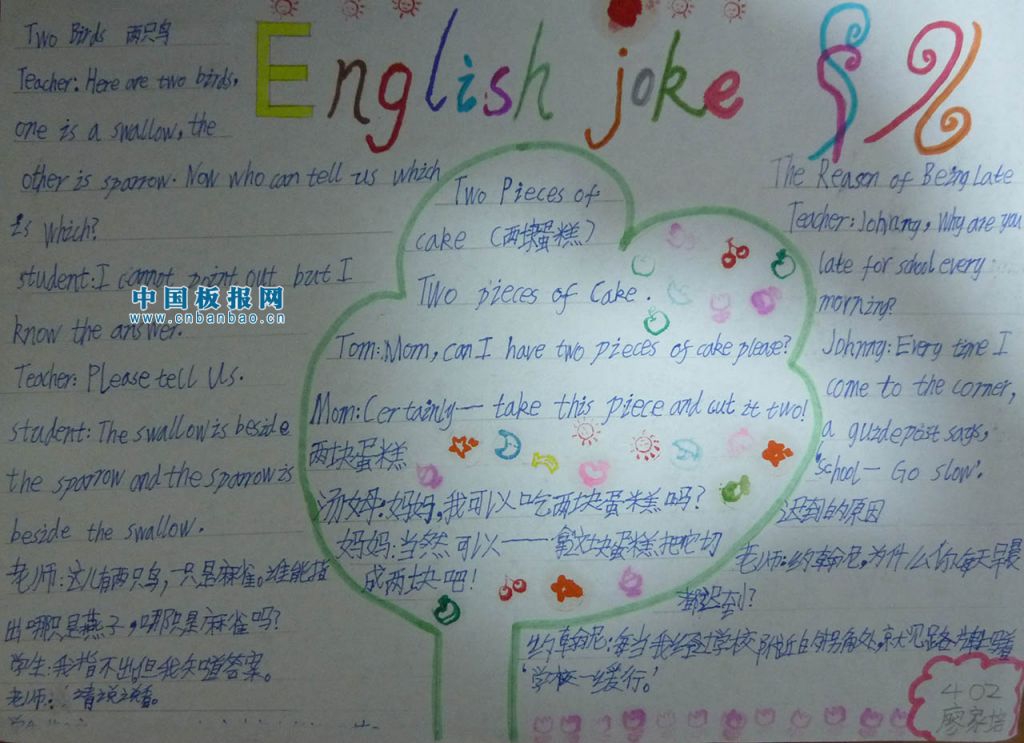 English joke
Two Birds 两只鸟
Teacher: Here are two birds,
one is a swallow, the
other is sparrow. Now who can tell us which
is which?
student: I cannot point out but I
know the answer.
Teacher: Please tell Us.
student: The swallow is beside
the sparrow and the sparrow is
beside the swallow.
老师:这儿有两只鸟,一只是麻雀。谁能指
出哪只是燕子,哪只是麻雀吗?
学生:我指不出,但我知道答案。
老师: 请说说看。
中国板报网
www.cnbanbao.cn
Two Pieces of
cake (两块蛋糕)
Two pieces of Cake.
Tom: Mom, can I have two pieces of cake please?
Mom: Certainly— take this piece and cut it two!
两块蛋糕
汤姆:妈妈,我可以吃两块蛋糕吗?
妈妈:当然可以——拿这块蛋糕把它切
成两块吧!
The Reason of Being Late
Teacher: Johnng, Why are you
late for school every
morning?
Johnng: Every time I
come to the corner,
a guidepost says,
"school — Go slow".
迟到的原因
老师:约翰尼,为什么你每天早晨
都迟到?
约翰尼:每当我经过学校附近的拐角处,就见路牌上写着
‘学校—缓行.’
402